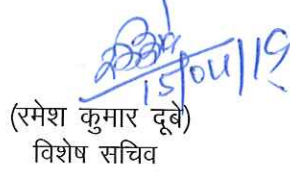 15/04/19
(रमेश कुमार दूबे)
विशेष सचिव